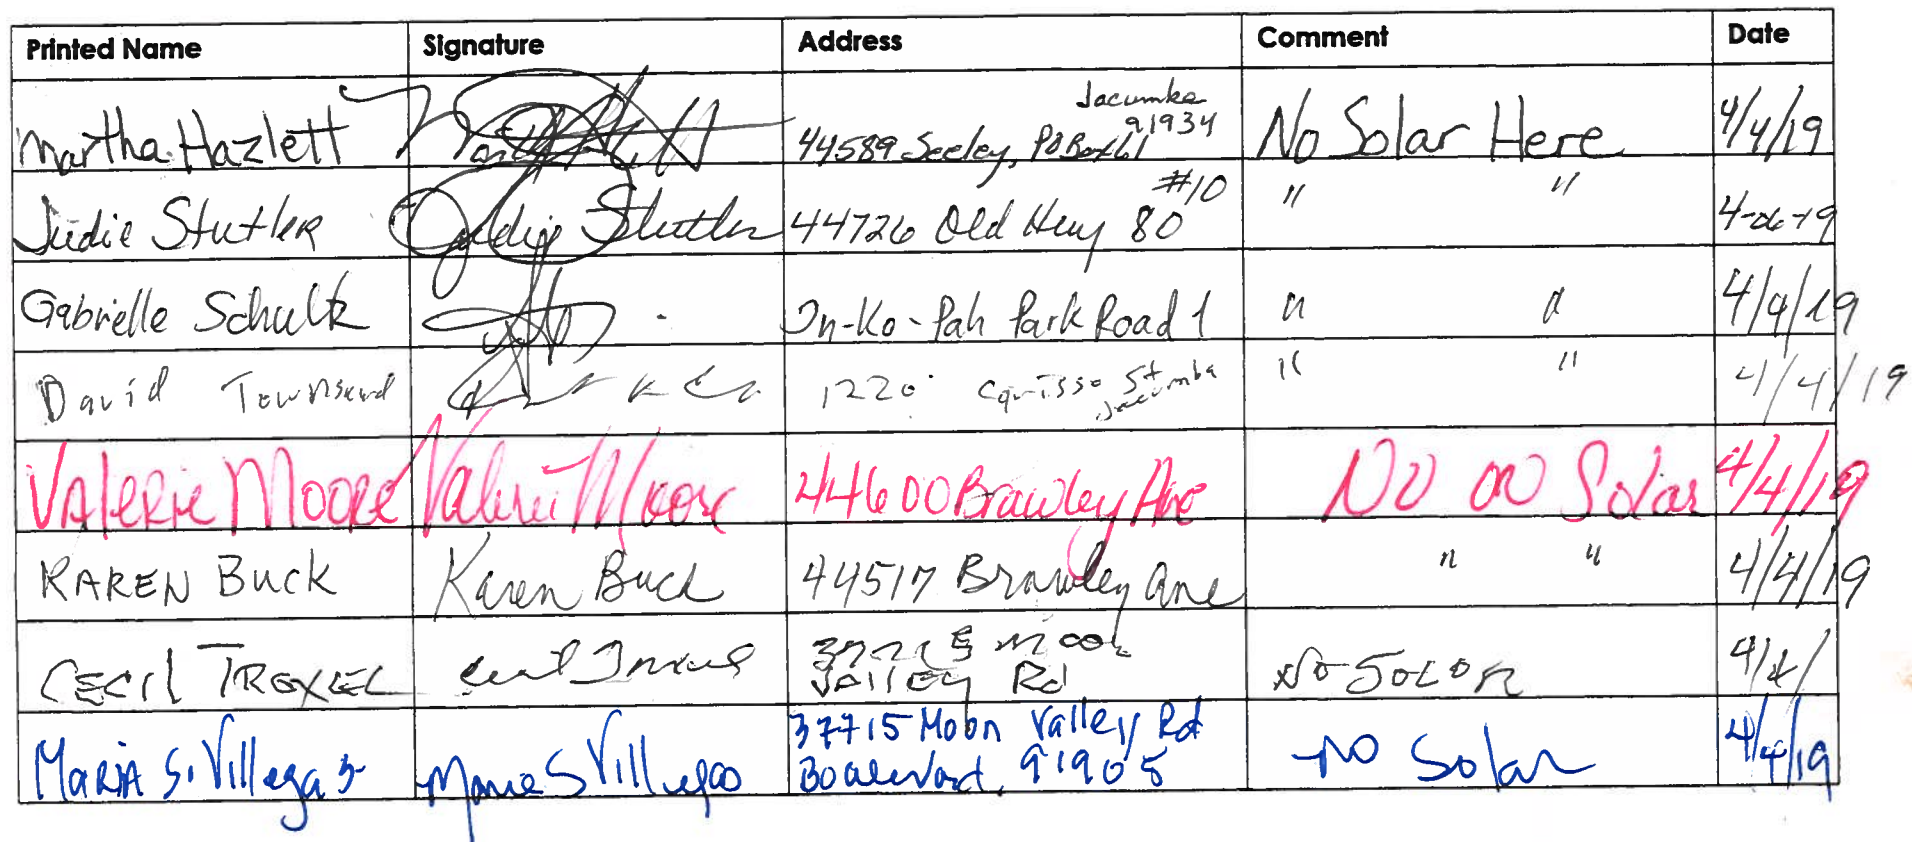 Printed Name Signature Address Comment Date
Martha Hazlett 44589 Seeley, PO Box 61 Jacumba 91934 No Solar Here 4/4/19
Judie Stutler Judie Stutler 44726 Old Hwy 80 #10 " " 4-04-19
Gabrielle Schultz In-Ko-Pah Park Road 1 " " 4/4/19
David Townsend 1220 St Jacumba " " 4/4/19
Valerie Moore Valerie Moore 44600 Brawley Ave No on Solar 4/4/19
KAREN BUCK Karen Buck 44517 Brawley Ave " " 4/4/19
CECIL TROXEL Moon
Valley Rd No Solar 4/4/
MARIA S. Villegas Maria S Villegas 37715 Moon Valley Rd
Boulevard, 91905 No Solar 4/4/19